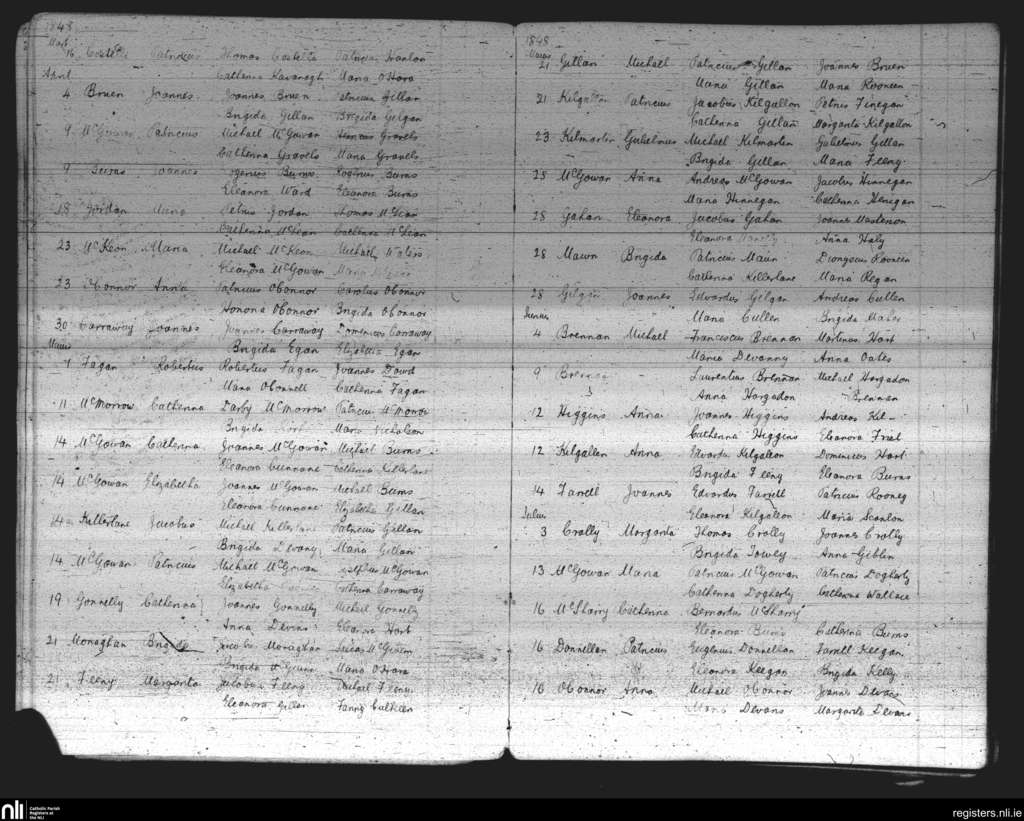 1848
Mart
16 Costello Patricius Thomas Costello Patricius Hanlon
Catherina Kavanagh Maria OHara
April
4 Bruen Joannes Joannes Bruen Patricius Gillan
Brigida Gillan Brigida Gilgan
9 McGowan Patricius Michael McGowan Gravels
Catherina Gravels Maria Gravels
9 Burns Joannes Burns Burns
Eleanora Ward Eleanora Burns
18 Jordan Maria Petrus Jordan Thomas
Catherina Catherina
23 McKeon Maria Michael McKeon Michael Waters
Eleanora McGowan Maria
23 OConnor Anna Patricius OConnor Carolus OConnor
Honoria OConnor Brigida OConnor
30 Carraway Joannes Joannes Carraway Dominicus Carraway
Brigida Egan Elizabeth Egan
Maius
7 Fagan Robertus Robertus Fagan Joannes Dowd
Maria OConnell Catherina Fagan
11 McMorrow Catherina Darby McMorrow Patricius McMorrow
Brigida Hart Maria Nicholson
14 McGowan Catherina Joannes McGowan Michael Burns
Eleanora Cunnane Catherina Killerlane
14 McGowan Elizabetha Joannes McGowan Michael Burns
Eleanora Cunnane Elizabetha Gillan
14 Killerlane Jacobus Michael Killerlane Patricius Gillan
Brigida Devany Maria Gillan
14 McGowan Patricius Michael McGowan McGowan
Elizabetha Catherina Carraway
19 Gonnelly Catherina Joannes Gonnelly Michael Gonnelly
Anna Devins Eleanora Hart
21 Monaghan Brigida Jacobus Monaghan Lucas McGuinn
Brigida McGuinn Maria OHara
21 Feeny Margarita Jacobus Feeny Michael Feeny
Eleanora Gillan Fanny Cullen
1848
Maius
21 Gillan Michael Patricius Gillan Joannes Bruen
Maria Gillan Maria Rooneen
21 Kilgallon Patricius Jacobus Kilgallon Petrus Finegan
Catherina Gillan Margarita Kilgallon
23 Kilmartin Gulielmus Michael Kilmartin Gulielmus Gillan
Brigida Gillan Maria Feeny
25 McGowan Anna Andreas McGowan Jacobus Hinnegan
Maria Hinnegan Catherina Henigan
28 Gahan Eleanora Jacobus Gahan Joannes Masterson
Eleanora Anna Haly
28 Mawn Brigida Patricius Mawn Dionysius Rooneen
Catherina Killerlane Maria Regan
28 Gilgan Joannes Edvardus Gilgan Andreas Cullen
Maria Cullen Brigida
Junius
4 Brennan Michael Franciscus Brennan Martinus Hart
Maria Devanny Anna Oates
9 Brennan Laurentius Brennan Michael Hargadon
Anna Hargadon Brennan
12 Higgins Anna Joannes Higgins Andreas Kil-
Catherina Higgins Eleanora Friel
12 Kilgallen Anna Edvardus Kilgallon Dominicus Hart
Brigida Feeny Eleanora Burns
14 Farrell Joannes Edvardus Farrell Patricius Rooney
Eleanora Kilgallon Maria Scanlon
Julius
3 Crolly Margarita Thomas Crolly Joannes Crolly
Brigida Towey Anna Giblin
13 McGowan Maria Patricius McGowan Patricius Dogherty
Catherina Dogherty Catherina Wallace
16 McSharry Catherina Bernardus McSharry
Eleanora Burns Catherina Burns
16 Donnellan Patricius Eugenius Donnellan Farrell Keegan
Eleanora Keegan Brigida Kelly
18 OConnor Anna Michael OConnor Joannes Devans
Maria Devans Margarita Devans
nli Catholic Parish
Registers at
the NLI
registers.nli.ie